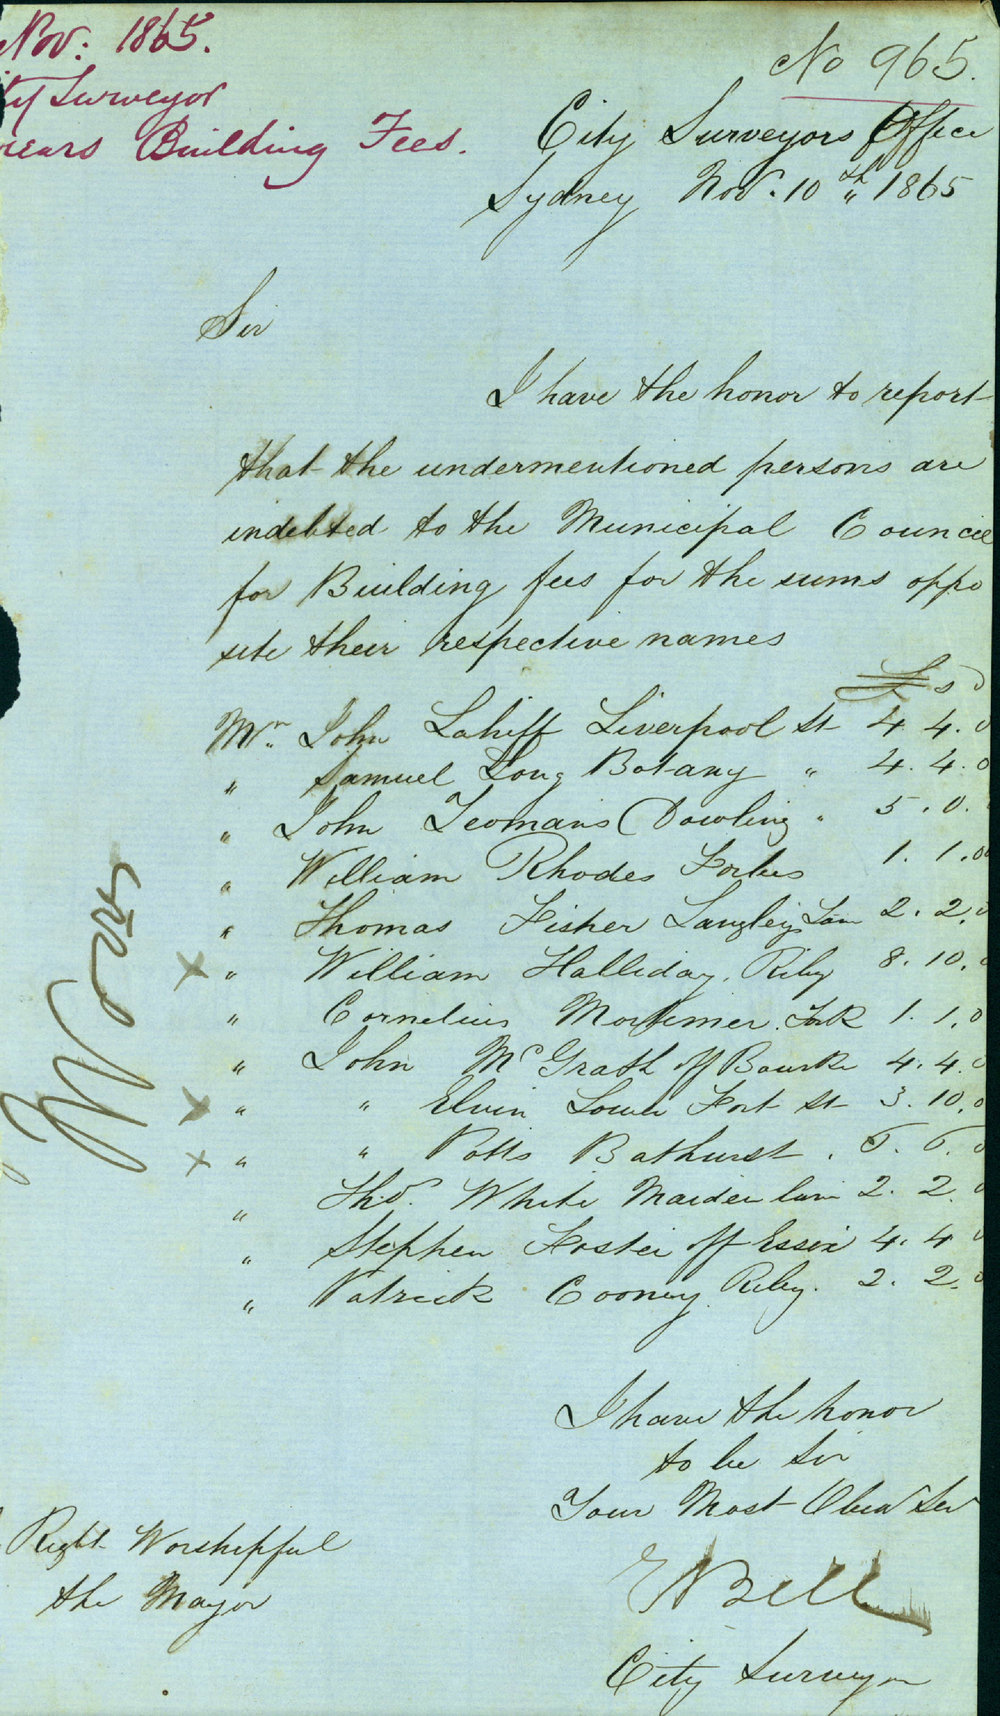 Nov: 1865.
ity Surveyor
rears Building Fees.
No 965.
City Surveyors Office
Sydney Nov. 10th 1865
Sir
I have the honor to report
that the undermentioned persons are
indebted to the Municipal Council
for Building fees for the sums oppo
site their respective names
£ s d
Mr. John Lahiff Liverpool St 4 4. 0
" Samuel Long Botany " 4. 4. 0
" John Yeomans Dowling " 5. 0.
" William Rhodes Forbes 1. 1. 0
" Thomas Fisher Langleys Lan 2. 2. 0
x " William Halliday. Riley 8. 10. 0
" Cornelius Mortimer. York 1. 1. 0
" John McGrath off Bourke 4. 4. 0
x " " Elvin Lower Fort St 3. 10. 0
x " " Potts Bathurst. 5. 5. 0
" Thos. White Maiden lane 2. 2. 0
" Stephen Foster off Essex 4. 4 0
" Patrick Cooney Riley. 2. 2. 0
I have the honor
to be Sir
Your Most Obed Ser
E Bell
City Surveyor
Right Worshipful
the Mayor